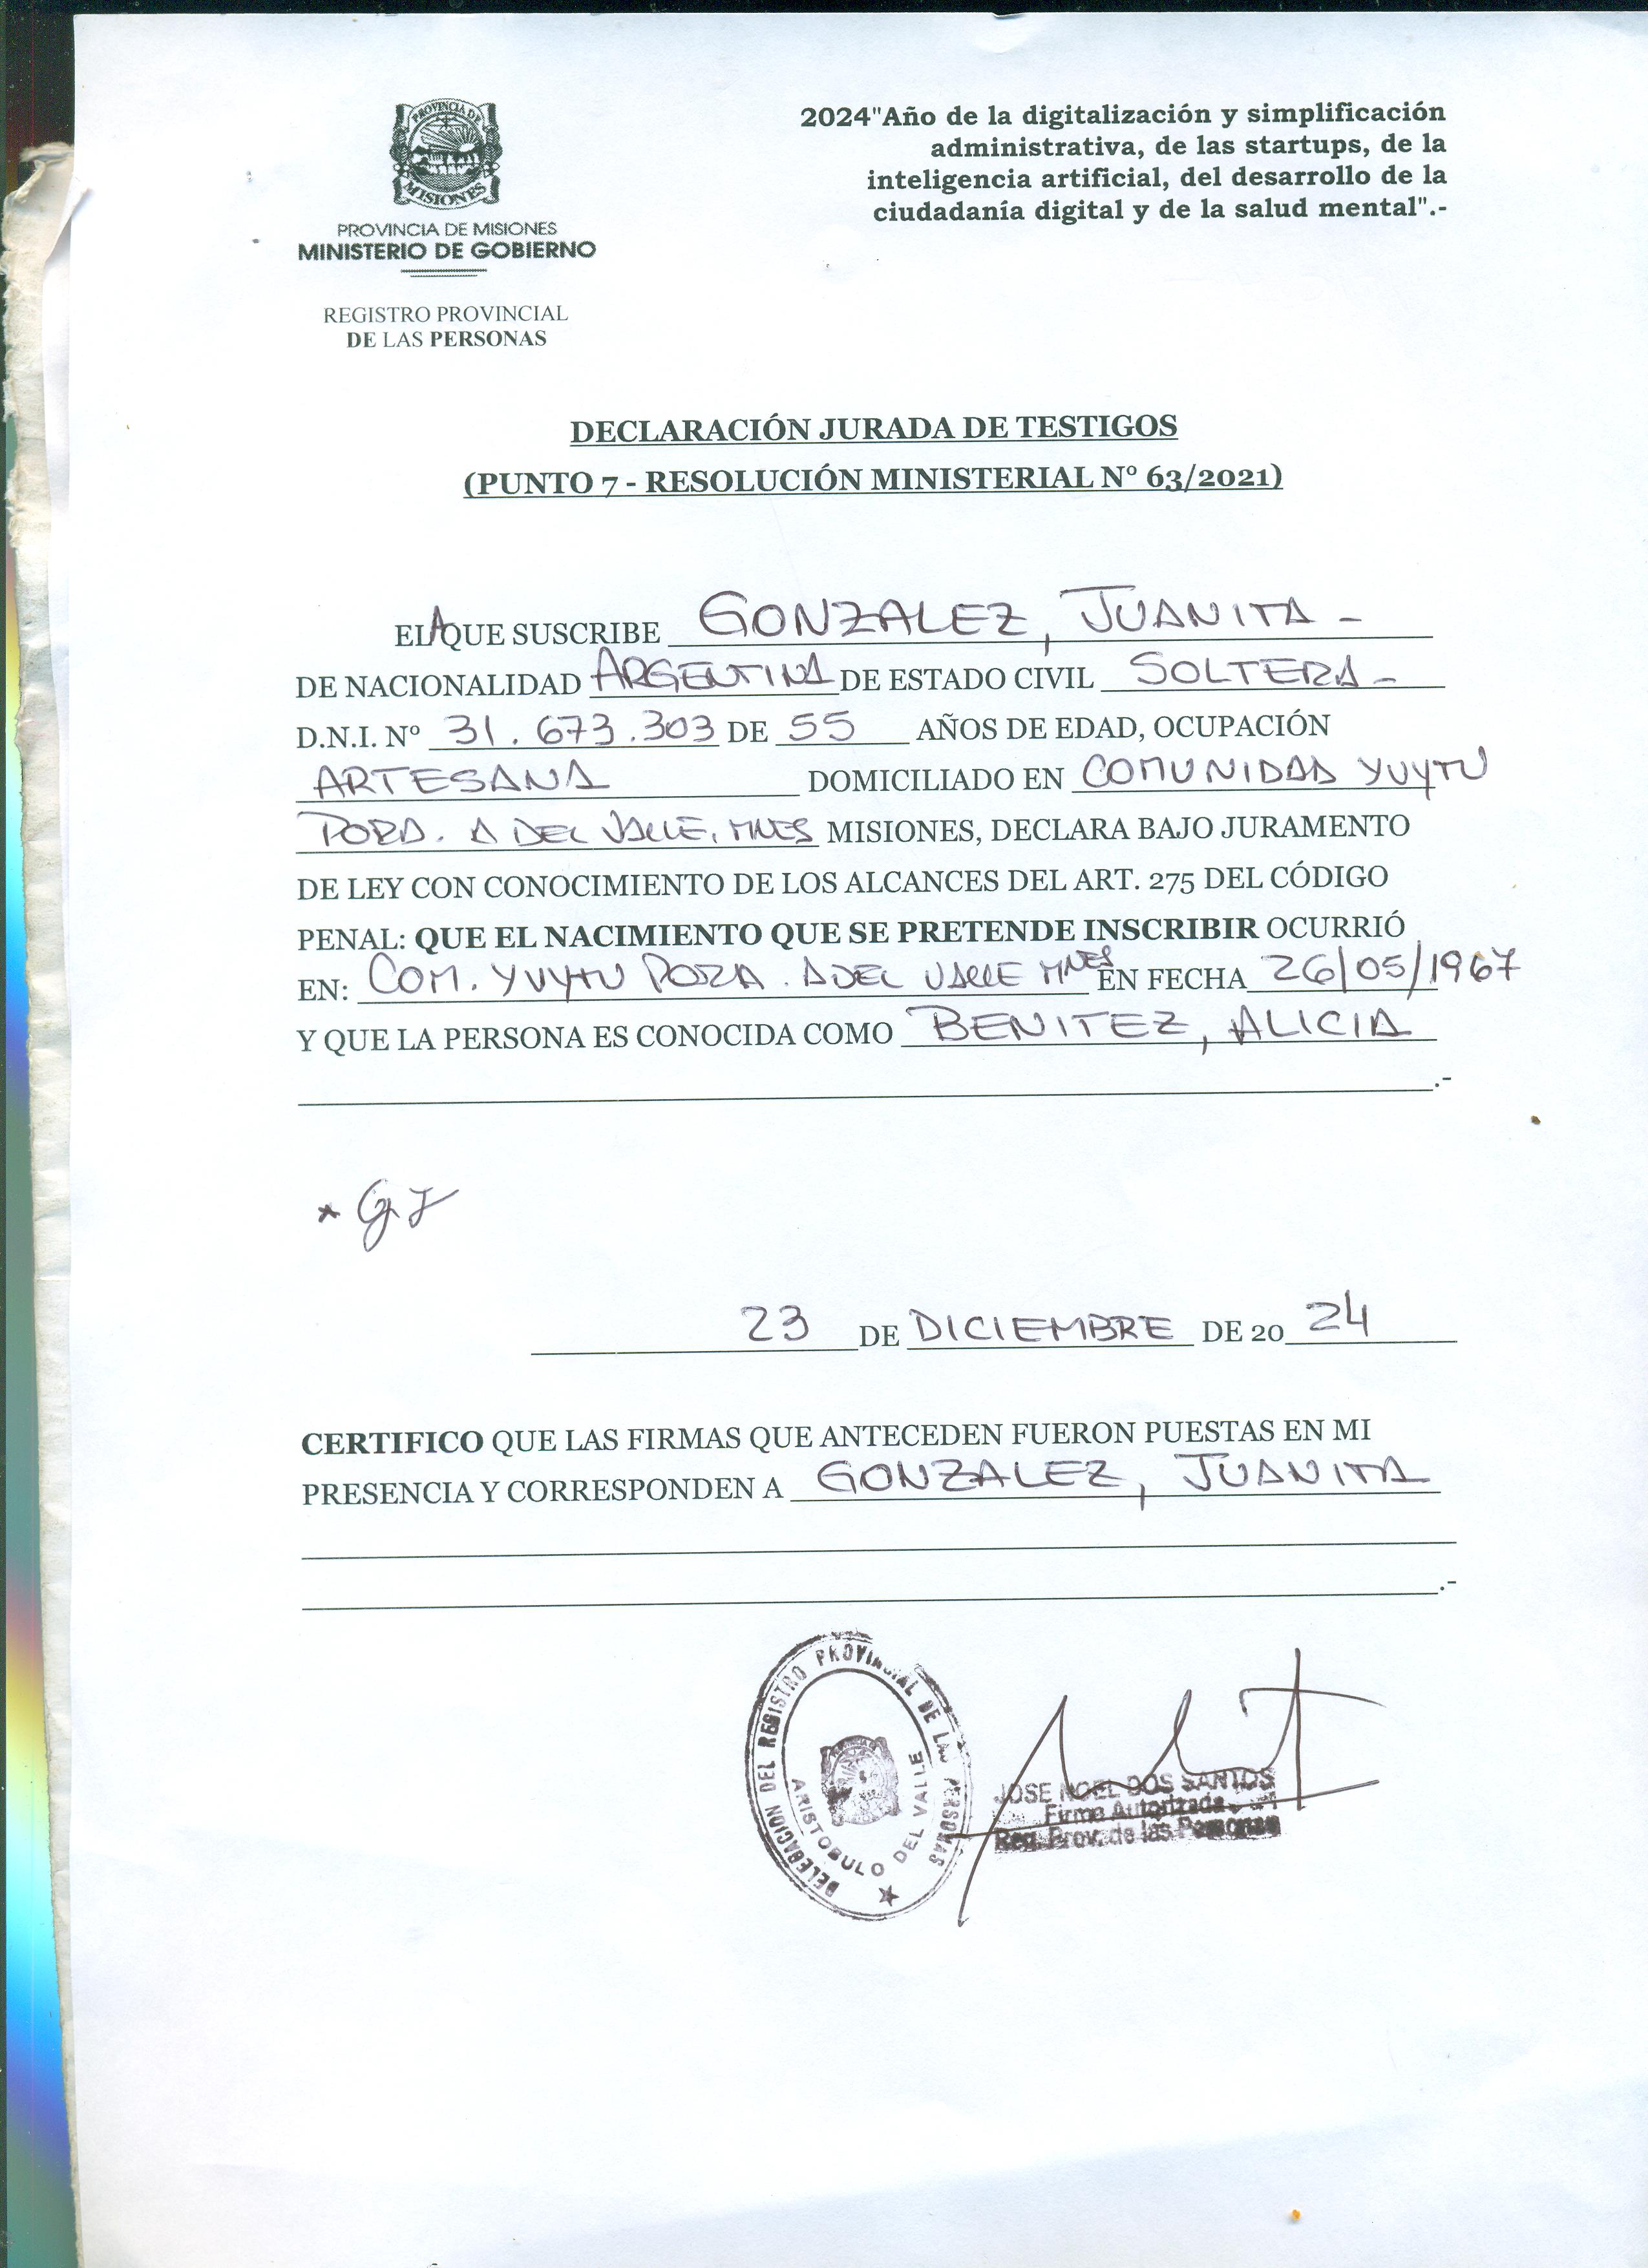 PROVINCIA DE
MISIONES
PROVINCIA DE MISIONES
MINISTERIO DE GOBIERNO
REGISTRO PROVINCIAL
DE LAS PERSONAS
2024"Año de la digitalización y simplificación
administrativa, de las startups, de la
inteligencia artificial, del desarrollo de la
ciudadanía digital y de la salud mental".-
DECLARACIÓN JURADA DE TESTIGOS
(PUNTO 7 - RESOLUCIÓN MINISTERIAL N° 63/2021)
El/A QUE SUSCRIBE GONZALEZ, JUANITA -
DE NACIONALIDAD ARGENTINA DE ESTADO CIVIL SOLTERA -
D.N.I. Nº 31.673.303 DE 55 AÑOS DE EDAD, OCUPACIÓN
ARTESANA DOMICILIADO EN COMUNIDAD YUYTU
PORA. A DEL VALLE, MNES MISIONES, DECLARA BAJO JURAMENTO
DE LEY CON CONOCIMIENTO DE LOS ALCANCES DEL ART. 275 DEL CÓDIGO
PENAL: QUE EL NACIMIENTO QUE SE PRETENDE INSCRIBIR OCURRIÓ
EN: COM. YUYTU PORA. A DEL VALLE MNES EN FECHA 26/05/1967
Y QUE LA PERSONA ES CONOCIDA COMO BENITEZ, ALICIA
.-
* GJ
23 DE DICIEMBRE DE 2024
CERTIFICO QUE LAS FIRMAS QUE ANTECEDEN FUERON PUESTAS EN MI
PRESENCIA Y CORRESPONDEN A GONZALEZ, JUANITA
.-
DELEGACION DEL REGISTRO PROVINCIAL DE LAS PERSONAS
ARISTOBULO DEL VALLE
JOSE NOEL DOS SANTOS
Firma Autorizada
Reg. Prov. de las Personas